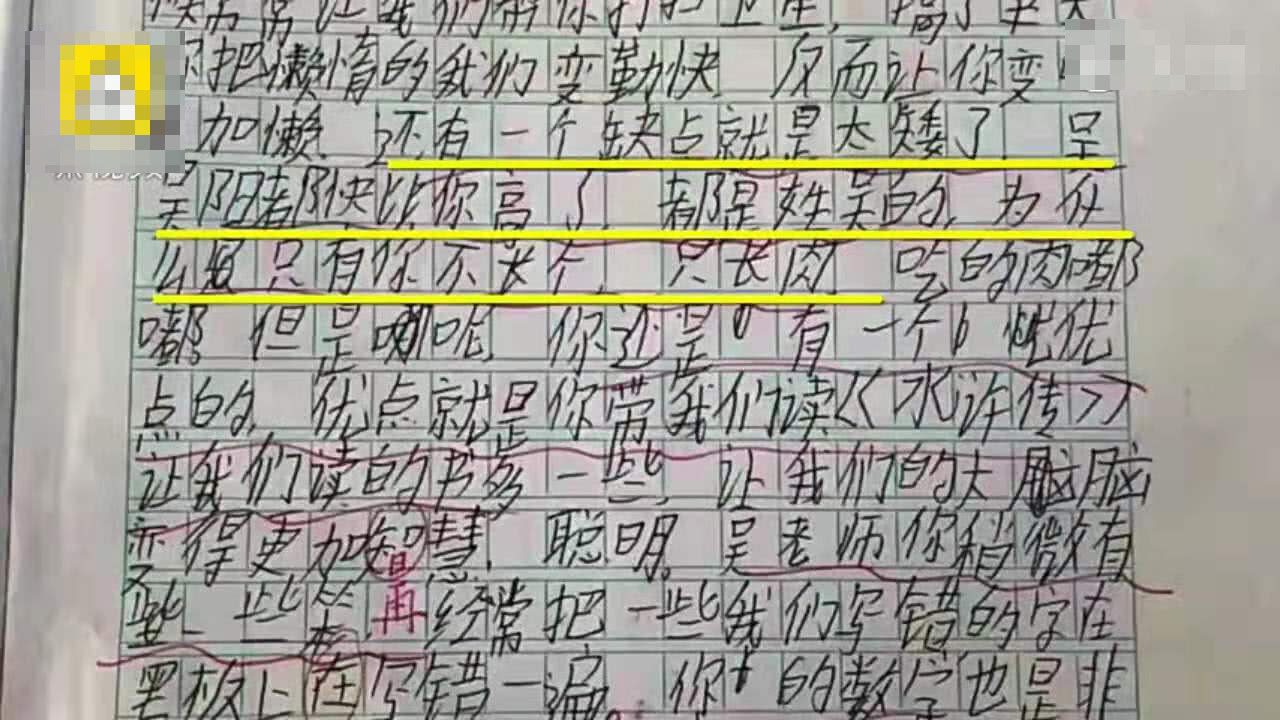 常让我们帮你打扫卫生,搞了半天
你把懒惰的我们变勤快,反而让你变
加懒,还有一个缺点就是太矮了,吴
阳都快比你高了,都是姓吴的,为什
么只有你不长个,只长肉,吃的肉嘟
嘟,但是呢,你还是有一个优
点的,优点就是你带我们读《水浒传》
让我们读的书多一些,让我们的大脑
变得更加智慧,聪明。吴老师你稍微有
一些笨 再 经常把一些我们写错的字在
黑板上在写错一遍。你的数学也是非